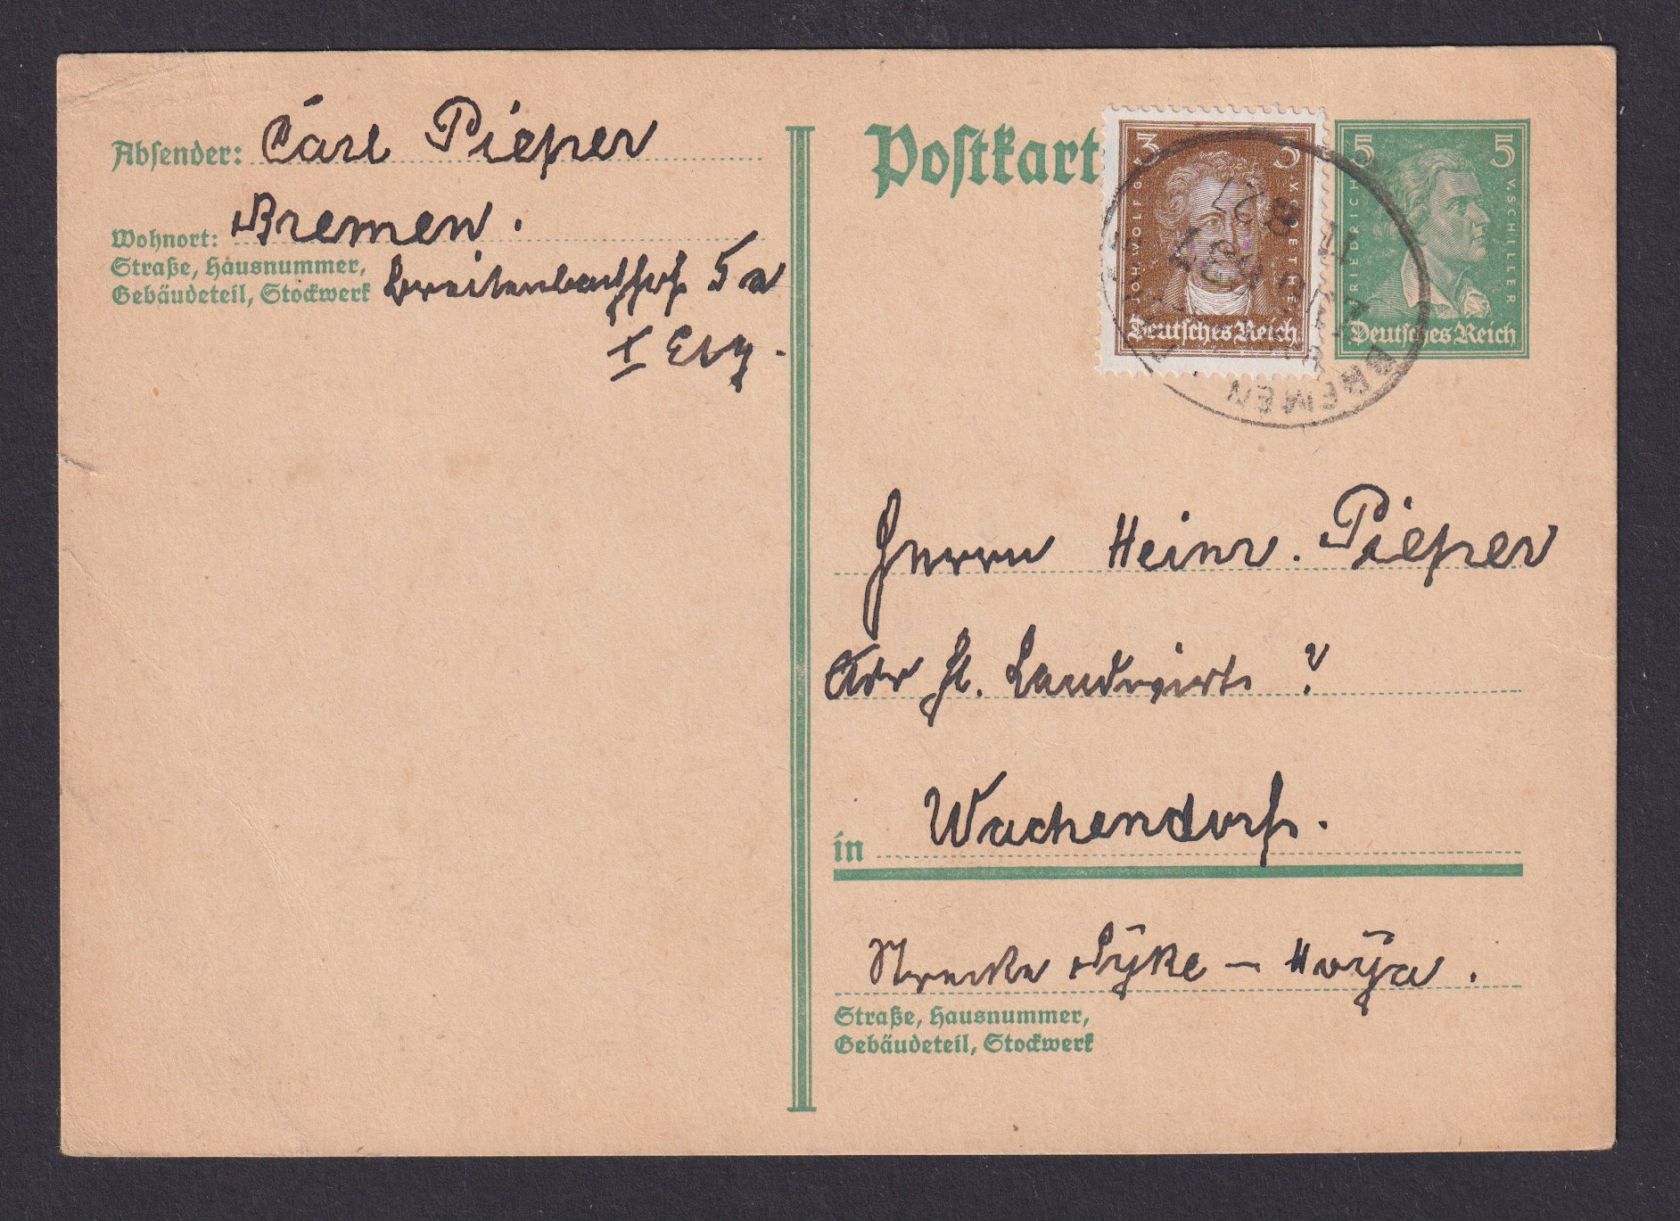 Absender: Carl Pieper
Wohnort: Bremen.
Straße, Hausnummer,
Gebäudeteil, Stockwerk Breitenbachhof 5a
I Etg.
Postkart
3 3
JOH. WOLFG. V. GOETHE
Deutsches Reich
5 5
FRIEDRICH V. SCHILLER
Deutsches Reich
BREMEN
Herrn Heinr. Pieper
Adr H. Landwirt ?
in Wachendorf.
Strecke Syke – Hoya.
Straße, Hausnummer,
Gebäudeteil, Stockwerk